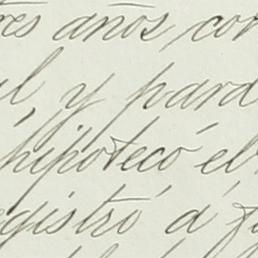 tres años, con
y para
hipotecó el
registró á